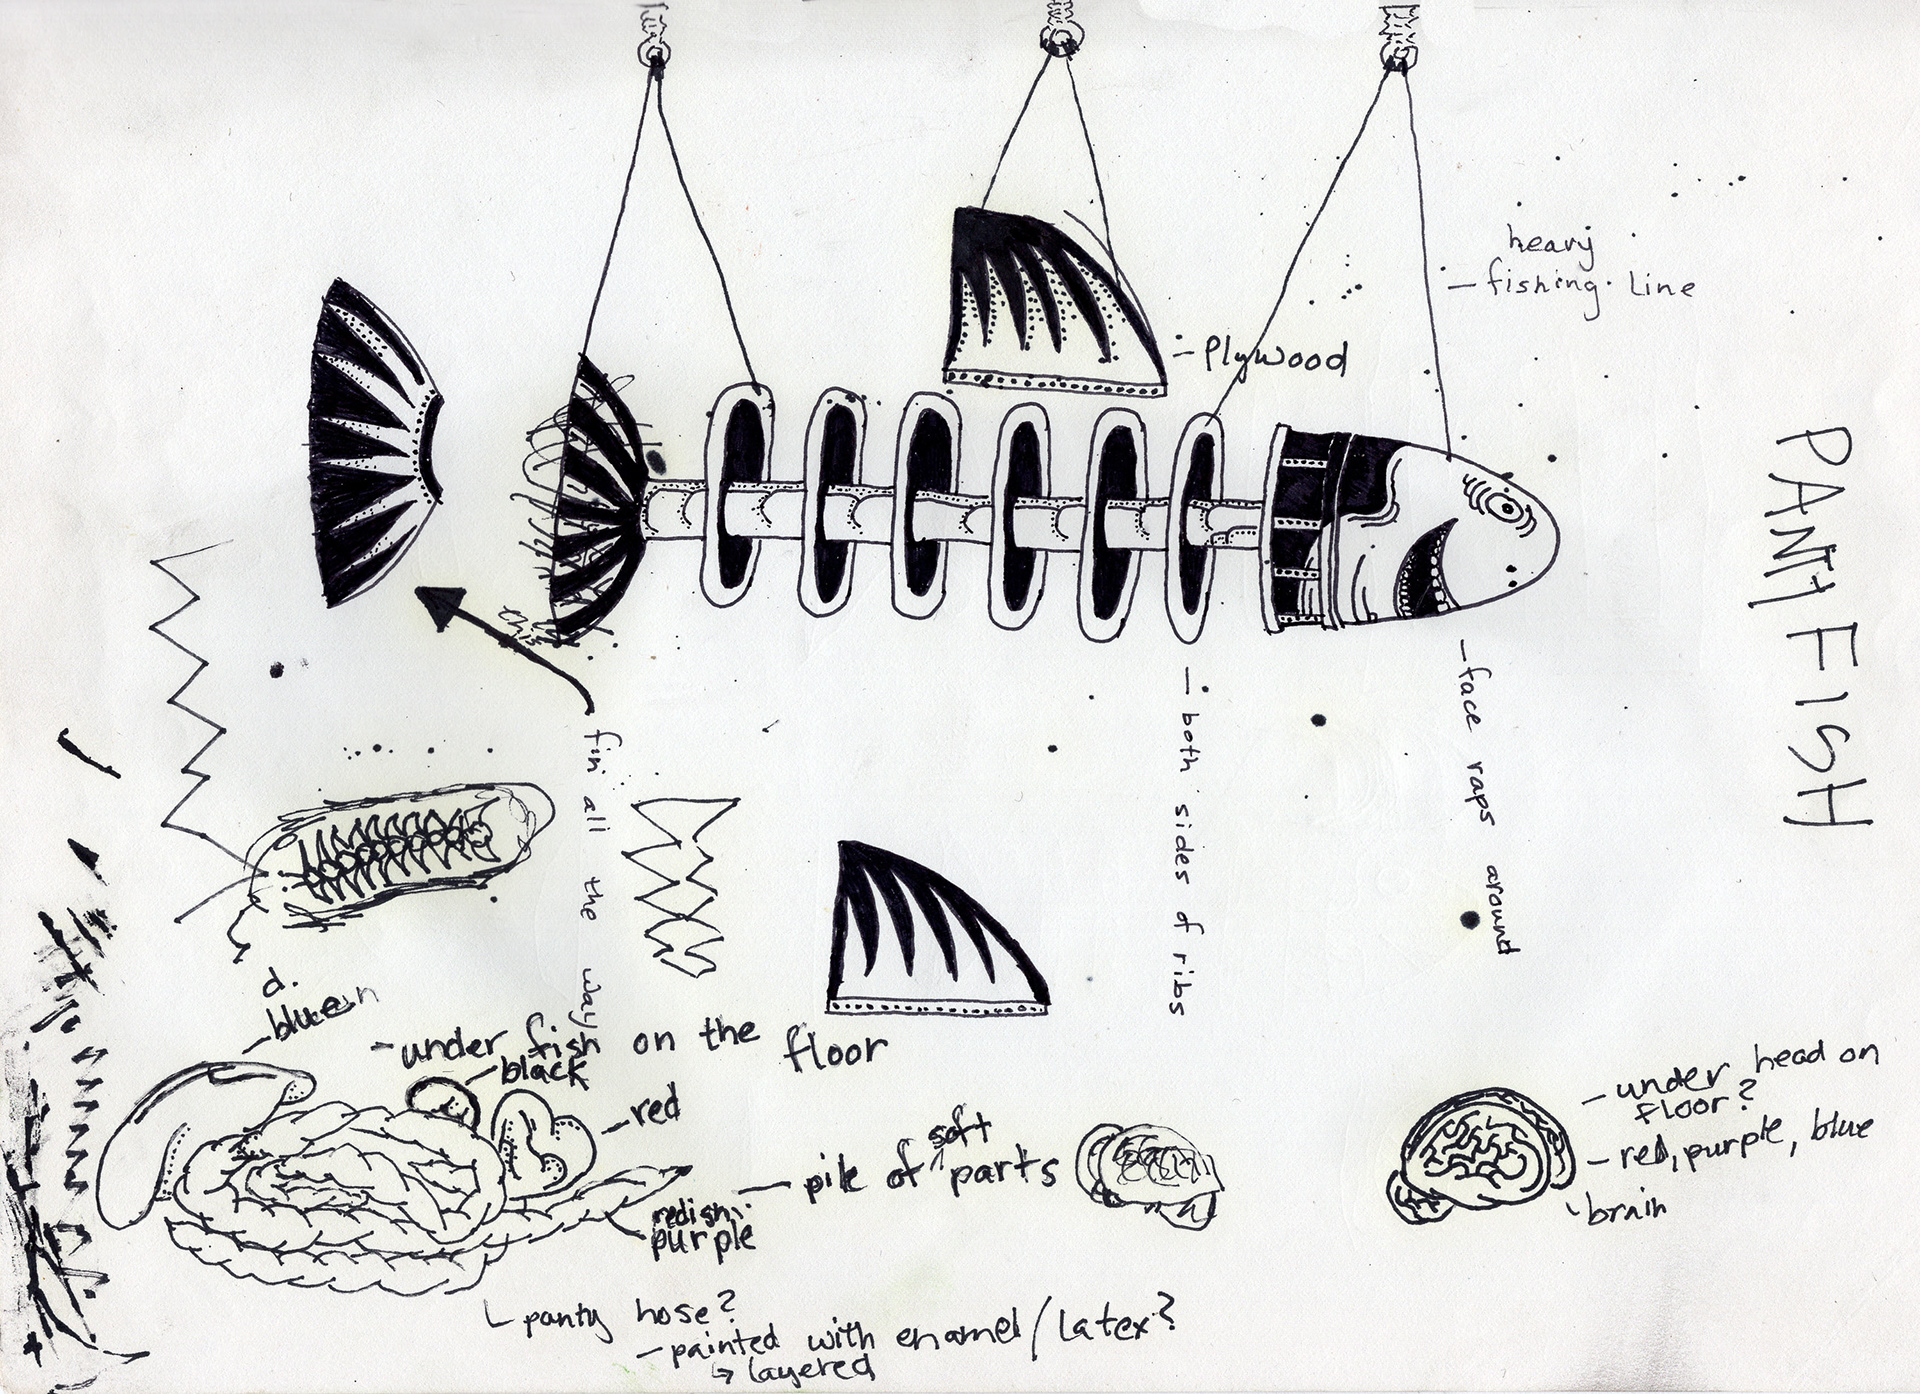 heavy
- fishing. Line
- Plywood
PANTY FISH
this
fin all the way
- both sides of ribs
- face raps around
d.
- under fish on the floor
- black
- red
- pile of soft parts
redish
purple
- under head on
floor?
- red, purple, blue
brain
panty hose?
- painted with enamel / Latex?
↳ layered